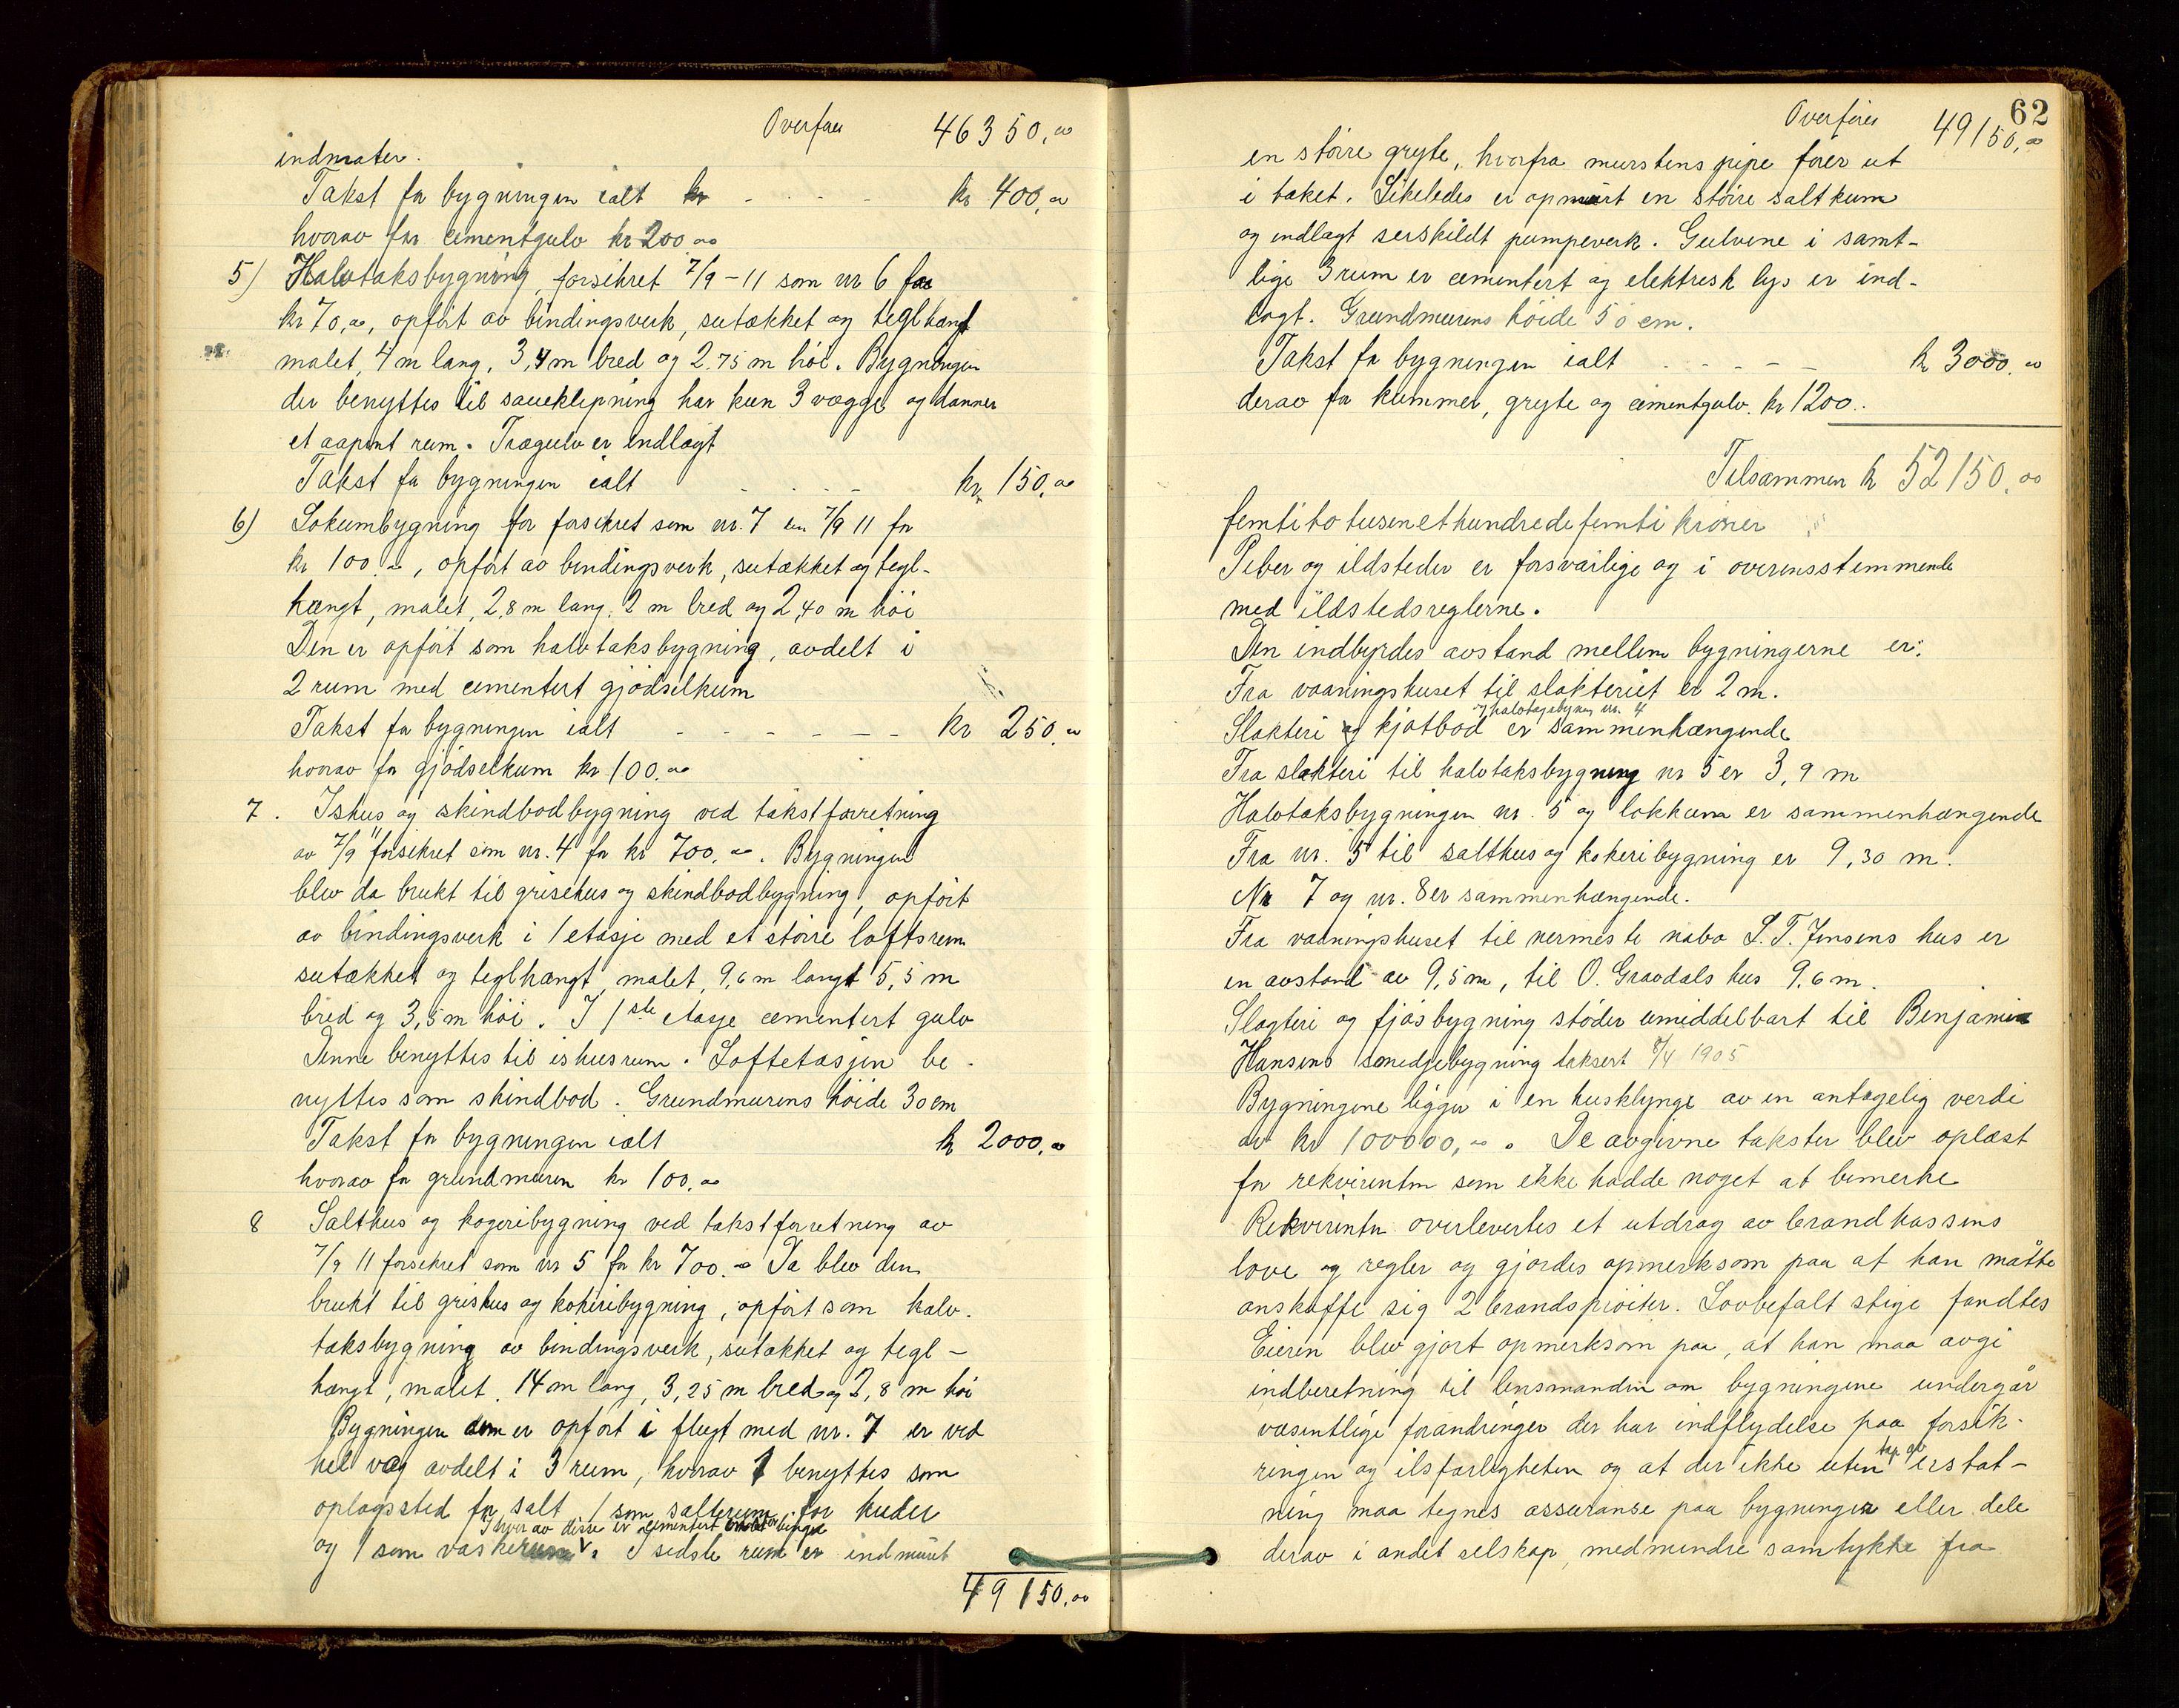 Overføres 46350,00
indmater.
Takst for bygningen ialt kr - - - - kr 400,00
hvorav for cementgulv kr 200,00
5) Halvtaksbygning, forsikret 7/9-11 som nr 6 for
kr 70,00, opført av bindingsverk, sutækket og teglhængt
malet, 4 m lang, 3,4 m bred og 2.75 m høi. Bygningen
der benyttes til saueklipning har kun 3 vægge og danner
et aapent rum. Trægulv er indlagt
Takst for bygningen ialt - - - - kr. 150,00
6) Lokumbygning for forsikret som nr. 7 den 7/9 11 for
kr 100,00, opført av bindingsverk, sutækket og tegl-
hængt, malet, 2,8 m lang. 2 m bred og 2,40 m høi
Den er opført som halvtaksbygning, avdelt i
2 rum med cementert gjødselkum
Takst for bygningen ialt - - - - - - kr 250,00
hvorav for gjødselkum kr 100,00
7. Ishus og skindbodbygning ved takstforretning
av 7/9 11 forsikret som nr. 4 for kr 700,00. Bygningen
blev da brukt til grisehus og skindbodbygning, opført
av bindingsverk i 1 etasje med et større loftsrum
sutækket og teglhængt, malet, 9,6 m langt 5,5 m
bred og 3,5 m høi. I 1ste etasje cementert gulv
Denne benyttes til ishusrum. Loftetasjen be-
nyttes som skindbod. Grundmurens høide 30 cm
Takst for bygningen ialt kr 2000,00
hvorav for grundmuren kr 100,00
8 Salthus og kogeribygning ved takstforretning av
7/9 11 forsikret som nr 5 for kr 700,00 Da blev den
brukt til grishus og kokeribygning, opført som halv-
taksbygning av bindingsverk, sutækket og tegl-
hængt, malet, 14 m lang, 3,25 m bred og 2,8 m høi
Bygningen som er opført i flugt med nr. 7 er ved
hel væg avdelt i 3 rum, hvorav 1 benyttes som
oplagssted for salt, 1 som salterum for huder
I hver av disse er cementert binge
og 1 som vaskerum. I sidste rum er indmuret
49150,00
62
Overføres 49150,00
en større gryte, hvorfra murstens pipe fører ut
i taket. Likeledes er opmurt en større saltkum
og indlagt serskildt pumpeverk. Gulvene i samt-
lige 3 rum er cementert og elektrisk lys er ind-
lagt. Grundmurens høide 50 cm.
Takst for bygningen ialt - - - - - kr 3000,00
derav for kummer, gryte og cementgulv. kr 1200..
Tilsammen kr 52150,00
femtito tusen et hundrede femti kroner
Piber og ildsteder er forsvarlige og i overensstemmende
med ildstedsreglerne.
Den indbyrdes avstand mellem bygningerne er:
Fra vaaningshuset til slakteriet er 2 m.
og halvtagsbygn nr. 4
Slakteri og kjøtbod er sammenhængende
Fra slakteri til halvtaksbygning nr 5 er 3,9 m
Halvtaksbygningen nr. 5 og lokkum er sammenhængende
Fra nr. 5 til salthus og kokeribygning er 9,30 m.
Nr 7 og nr. 8 er sammenhængende.
Fra vaaningshuset til nermeste nabo L. T. Jensens hus er
en avstand av 9,5 m, til O. Gravdals hus 9,6 m.
Slagteri og fjøsbygning støder umiddelbart til Benjamin
Hansens smedjebygning taksert 8/4 1905
Bygningene ligger i en husklynge av en antagelig verdi
av kr 100000,00. De avgivne takster blev oplæst
for rekvirenten som ikke hadde noget at bemerke
Rekvirenten overlevertes et utdrag av brandkassens
love og regler og gjordes opmerksom paa at han måtte
anskaffe sig 2 brandsprøiter. Lovbefalt stige fandtes
Eieren blev gjort opmerksom paa, at han maa avgi
indberetning til lensmanden om bygningene undergår
væsentlige forandringer der har indflydelse paa forsik-
ringen og ilsfarligheten og at der ikke uten tap av erstat-
ning maa tegnes assuranse paa bygningen eller dele
derav i andet selskap, medmindre samtykke fra